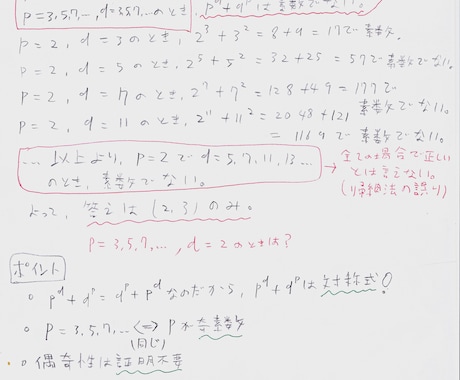 p=3,5,7,…, d=3,5,7,…のとき, p^d+d^pは素数でない。
p=2, d=3のとき, 2³+3²=8+9=17で素数.
p=2, d=5のとき, 2⁵+5²=32+25=57で素数でない.
p=2, d=7のとき, 2⁷+7²=128+49=177で
素数でない.
p=2, d=11のとき, 2¹¹+11²=2048+121
=1169で素数でない.
… 以上より, p=2でd=5,7,11,13…
のとき, 素数でない。
→ 全ての場合で正しい
とは言えない。
(帰納法の誤り)
よって, 答えは(2,3)のみ。
p=3,5,7,…, d=2のときは?
ポイント
○ p^d+d^p=d^p+p^dなのだから, p^d+d^pは対称式!
○ p=3,5,7,… ⇔ pが奇素数
(同じ)
○ 偶奇性は証明不要